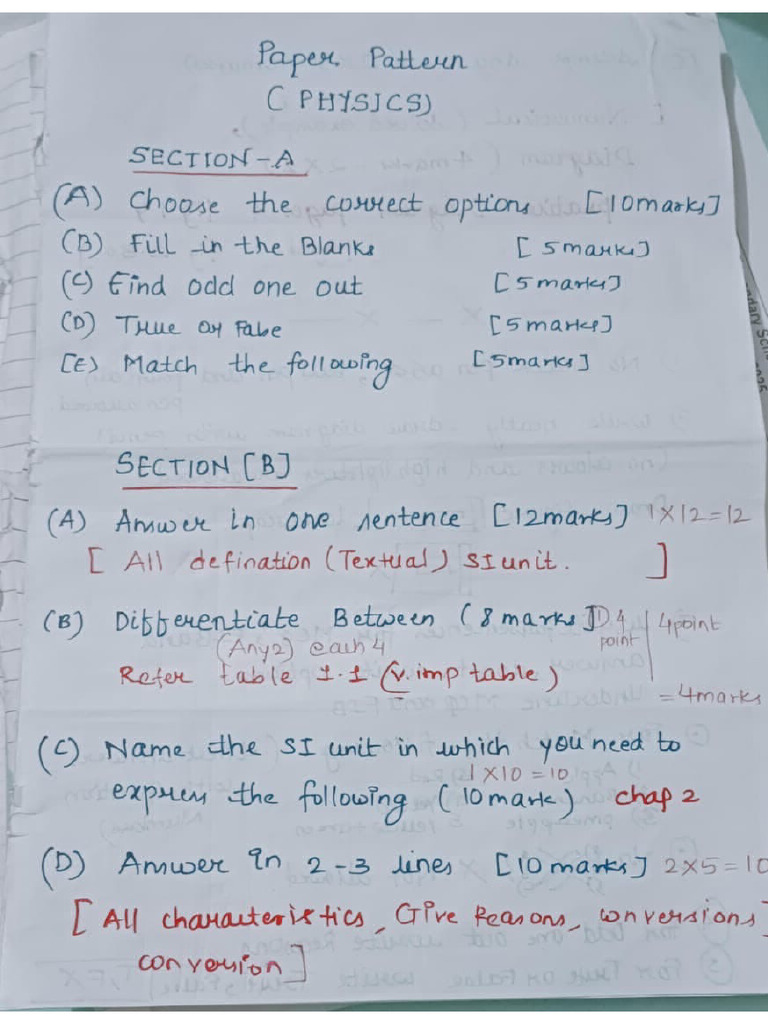 Paper Pattern
( PHYSICS)
SECTION-A
(A) Choose the correct options [10marks]
(B) Fill in the Blanks [5marks]
(C) Find odd one out [5marks]
(D) True or False [5marks]
[E) Match the following [5marks]
SECTION [B]
(A) Answer in one sentence [12marks] 1×12=12
[ All defination (Textual) SI unit. ]
(B) Differentiate Between (8 marks] 4 point | 4point
(Any2) each 4
Refer table 1.1 (v.imp table) = 4marks
(C) Name the SI unit in which you need to
1×10=10
express the following (10mark) chap 2
(D) Answer in 2-3 lines [10marks] 2×5=10
[ All characteristics, Give Reasons, conversions]
conversion]